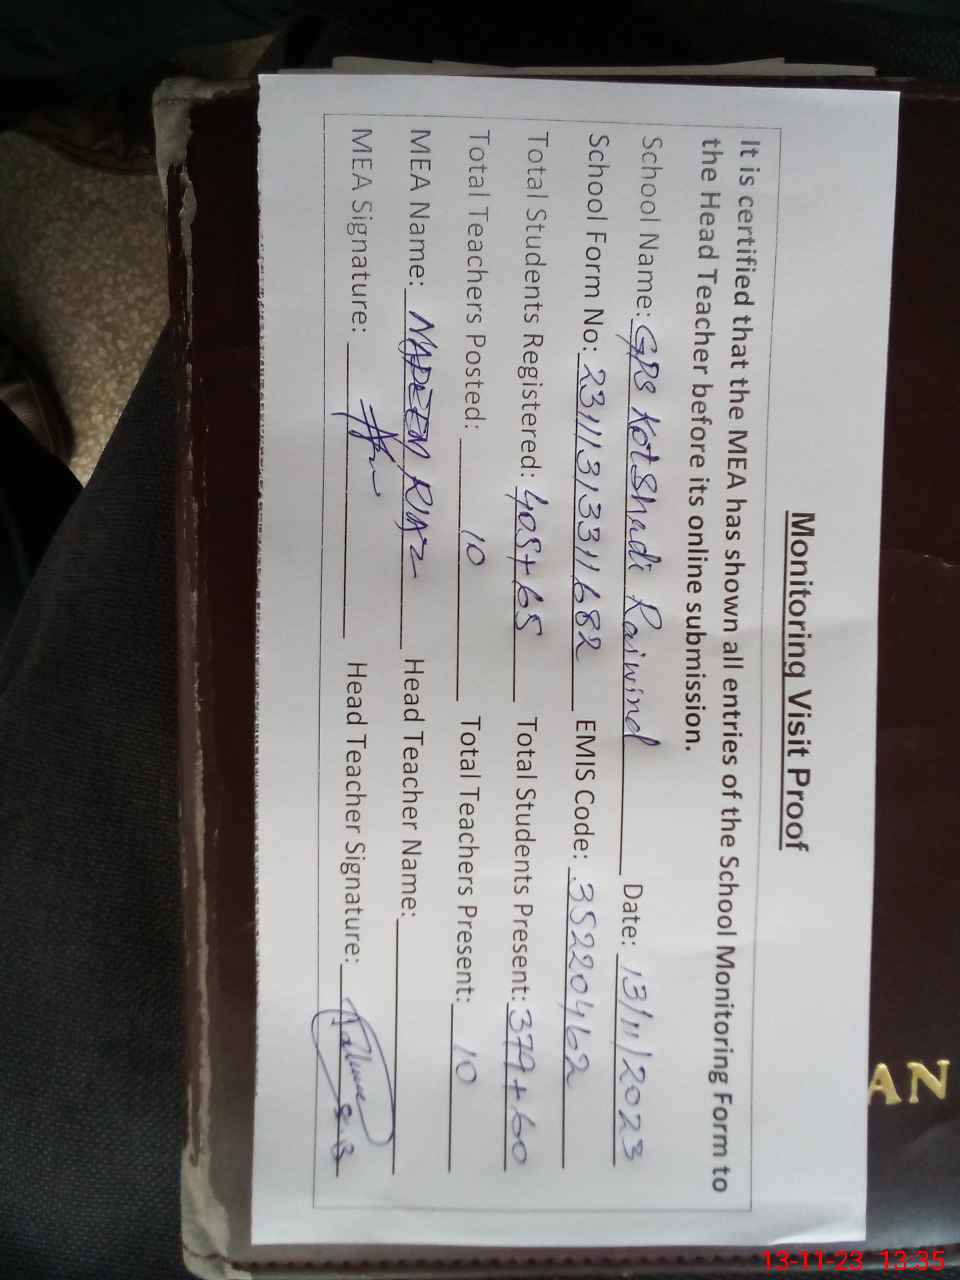 Monitoring Visit Proof
It is certified that the MEA has shown all entries of the School Monitoring Form to
the Head Teacher before its online submission.
School Name: GPS Kot Shadi Raiwind Date: 13/11/2023
School Form No: 23111313311682 EMIS Code: 35220462
Total Students Registered: 405+65 Total Students Present: 379+60
Total Teachers Posted: 10 Total Teachers Present: 10
MEA Name: NADEEM RIAZ Head Teacher Name:
MEA Signature: Head Teacher Signature:
AN
13-11-23 13:35